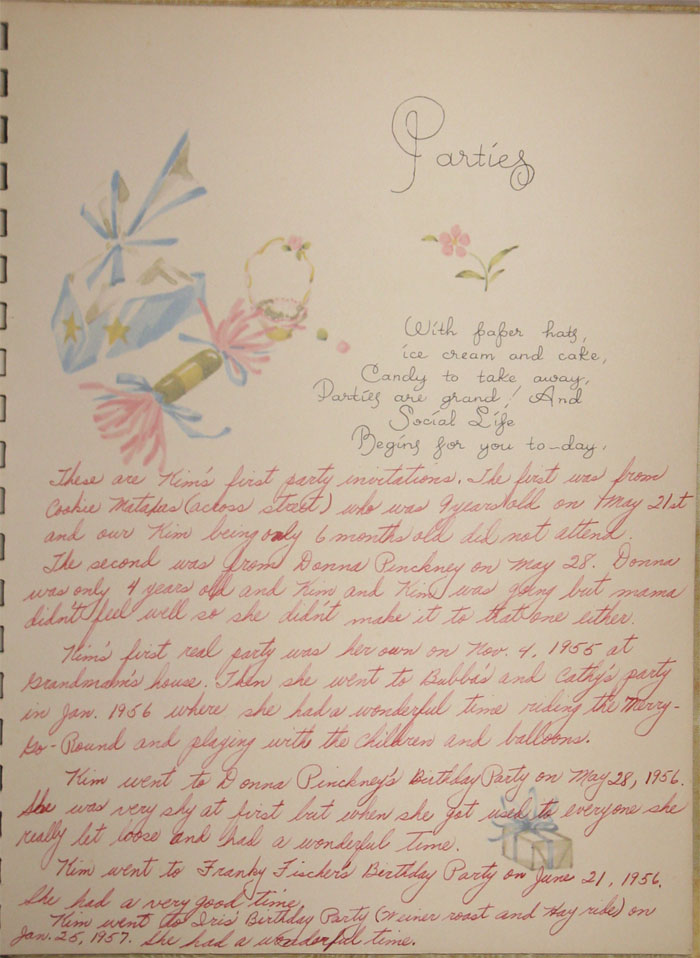 Parties
With paper hats,
ice cream and cake,
Candy to take away,
Parties are grand! And
Social Life
Begins for you to-day.
These are Kim's first party invitations. The first was from
Cookie Matapas (across street) who was 9 years old on May 21st
and our Kim being only 6 months old did not attend.
The second was from Donna Pinckney on May 28. Donna
was only 4 years old and Kim and Kim was going but mama
didn't feel well so she didn't make it to that one either.
Kim's first real party was her own on Nov. 4, 1955 at
Grandmam's house. Then she went to Bubba's and Cathy's party
in Jan. 1956 where she had a wonderful time riding the Merry-
Go-Round and playing with the children and balloons.
Kim went to Donna Pinckney's Birthday Party on May 28, 1956.
She was very shy at first but when she got used to everyone she
really let loose and had a wonderful time.
Kim went to Franky Fischer's Birthday Party on June 21, 1956.
She had a very good time.
Kim went to Iris' Birthday Party (Weiner roast and Hay ride) on
Jan. 25, 1957. She had a wonderful time.